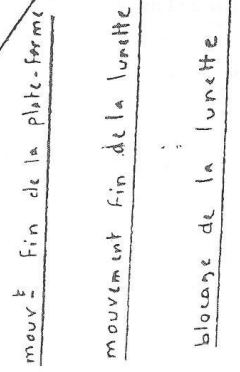 mouvt fin de la plate-forme
mouvement fin de la lunette
blocage de la lunette